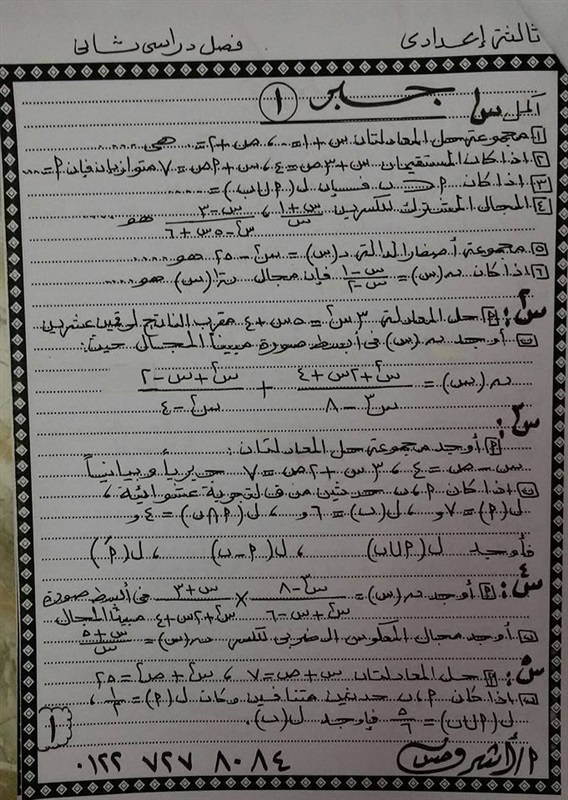 ثالثة إعدادى    فصل دراسى ثانى
جبر ①
س١ أكمل
١ مجموعة حل المعادلتان س + ١ = ٠ ، ص + ٢ = ٠ هى ......
٢ اذا كان المستقيمان س + ٣ص = ٤ ، س + ٢ص = ٧ متوازيان فإن ٢ = ......
٣ اذا كان ٢ ⊂ ب فسيان ل(٢∪ب) = ......
٤ المجال المشترك للكسرين (س+١)/س ، (س-٣)/(س٢-٥س+٦) هو
٥ مجموعة أصفار الدالة د(س) = س٢ - ٢٥ هو ......
٦ اذا كان ن(س) = (س-١)/(س-٢) فإن مجال ن-١(س) هو ......
س٢: ٢ حل المعادلة ٣س٢ = ٥س + ٤ مقرب الناتج لرقمين عشريين
ب أوجد ن(س) فى أبسط صورة مبيناً المجال حيث:
ن(س) = (س٢+٢س+٤)/(س٣-٨) + (س٢+س-٢)/(س٢-٤)
س٣:
٢ أوجد مجموعة حل المعادلتان:
س - ص = ٤ ، ٣س + ٢ص = ٧ جبرياً وبيانياً
ب اذا كان ٢، ب حدثين من ف لتجربة عشوائية ،
ل(٢) = ٧و ، ل(ب) = ٦و ، ل(٢∩ب) = ٤و
فأوجد ل(٢∪ب) ، ل(٢-ب) ، ل(٢َ)
س٤: ٢ أوجد ن(س) = (س٣-٨)/(س٢+س-٦) × (س+٣)/(س٢+٢س+٤) فى أبسط صورة
مبيناً المجال
ب أوجد مجال المعكوس الضربى للكسر ن(س) = (س+٥)/س
س٥: ٢ حل المعادلتان س + ص = ٧ ، س٢ + ص٢ = ٢٥
ب اذا كان ٢، ب حدثين متنافيين وكان ل(٢) = ١/٢ ،
ل(٢∪ب) = ٥/٦ فإوجد ل(ب).
١
٢/أشرف
٠١٢٢ ٧٢٧ ٨٠٨٤